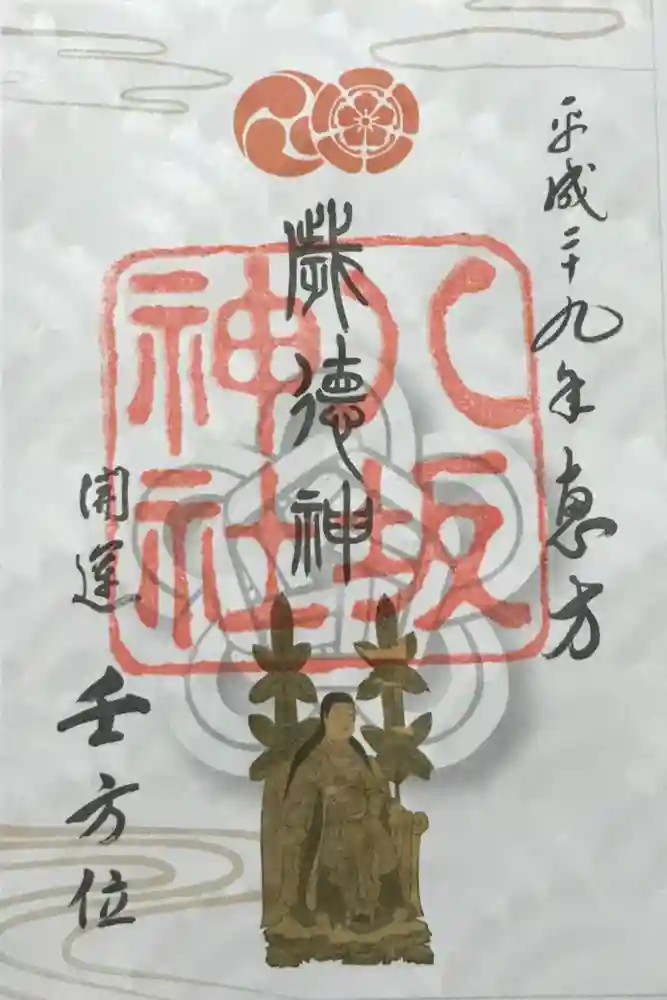 平成二十九年恵方
歳徳神
八坂
神社
開運
壬方位